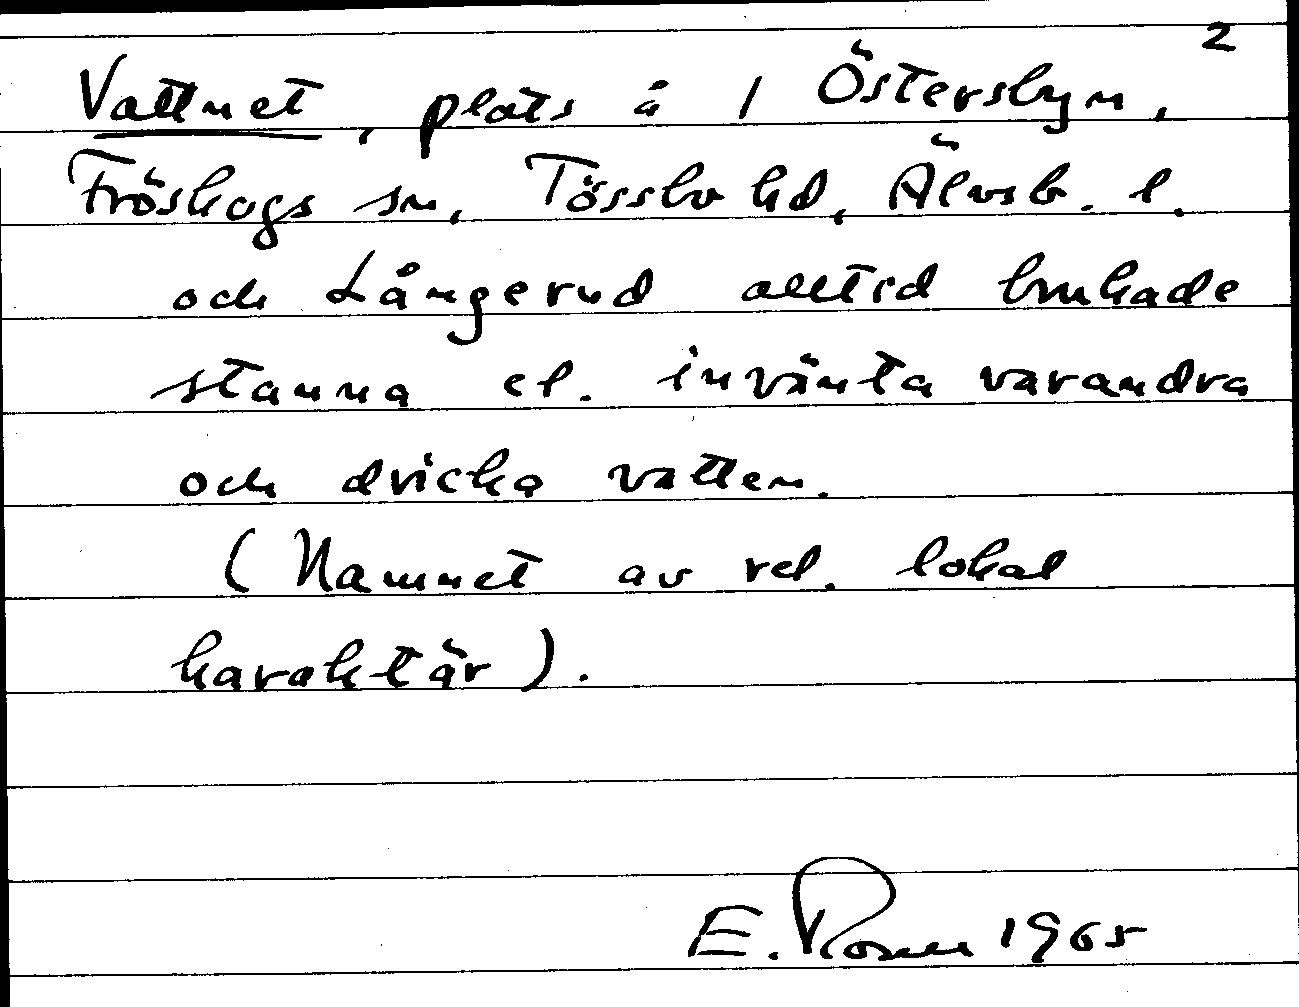 2
Vattnet, plats å 1 Österbyn,
Fröskogs sn, Tössbo hd, Älvsb. l.
och Långerud alltid brukade
stanna el. invänta varandra
och dricka vatten.
(Namnet av rel. lokal
karaktär).
E. Rosen 1965